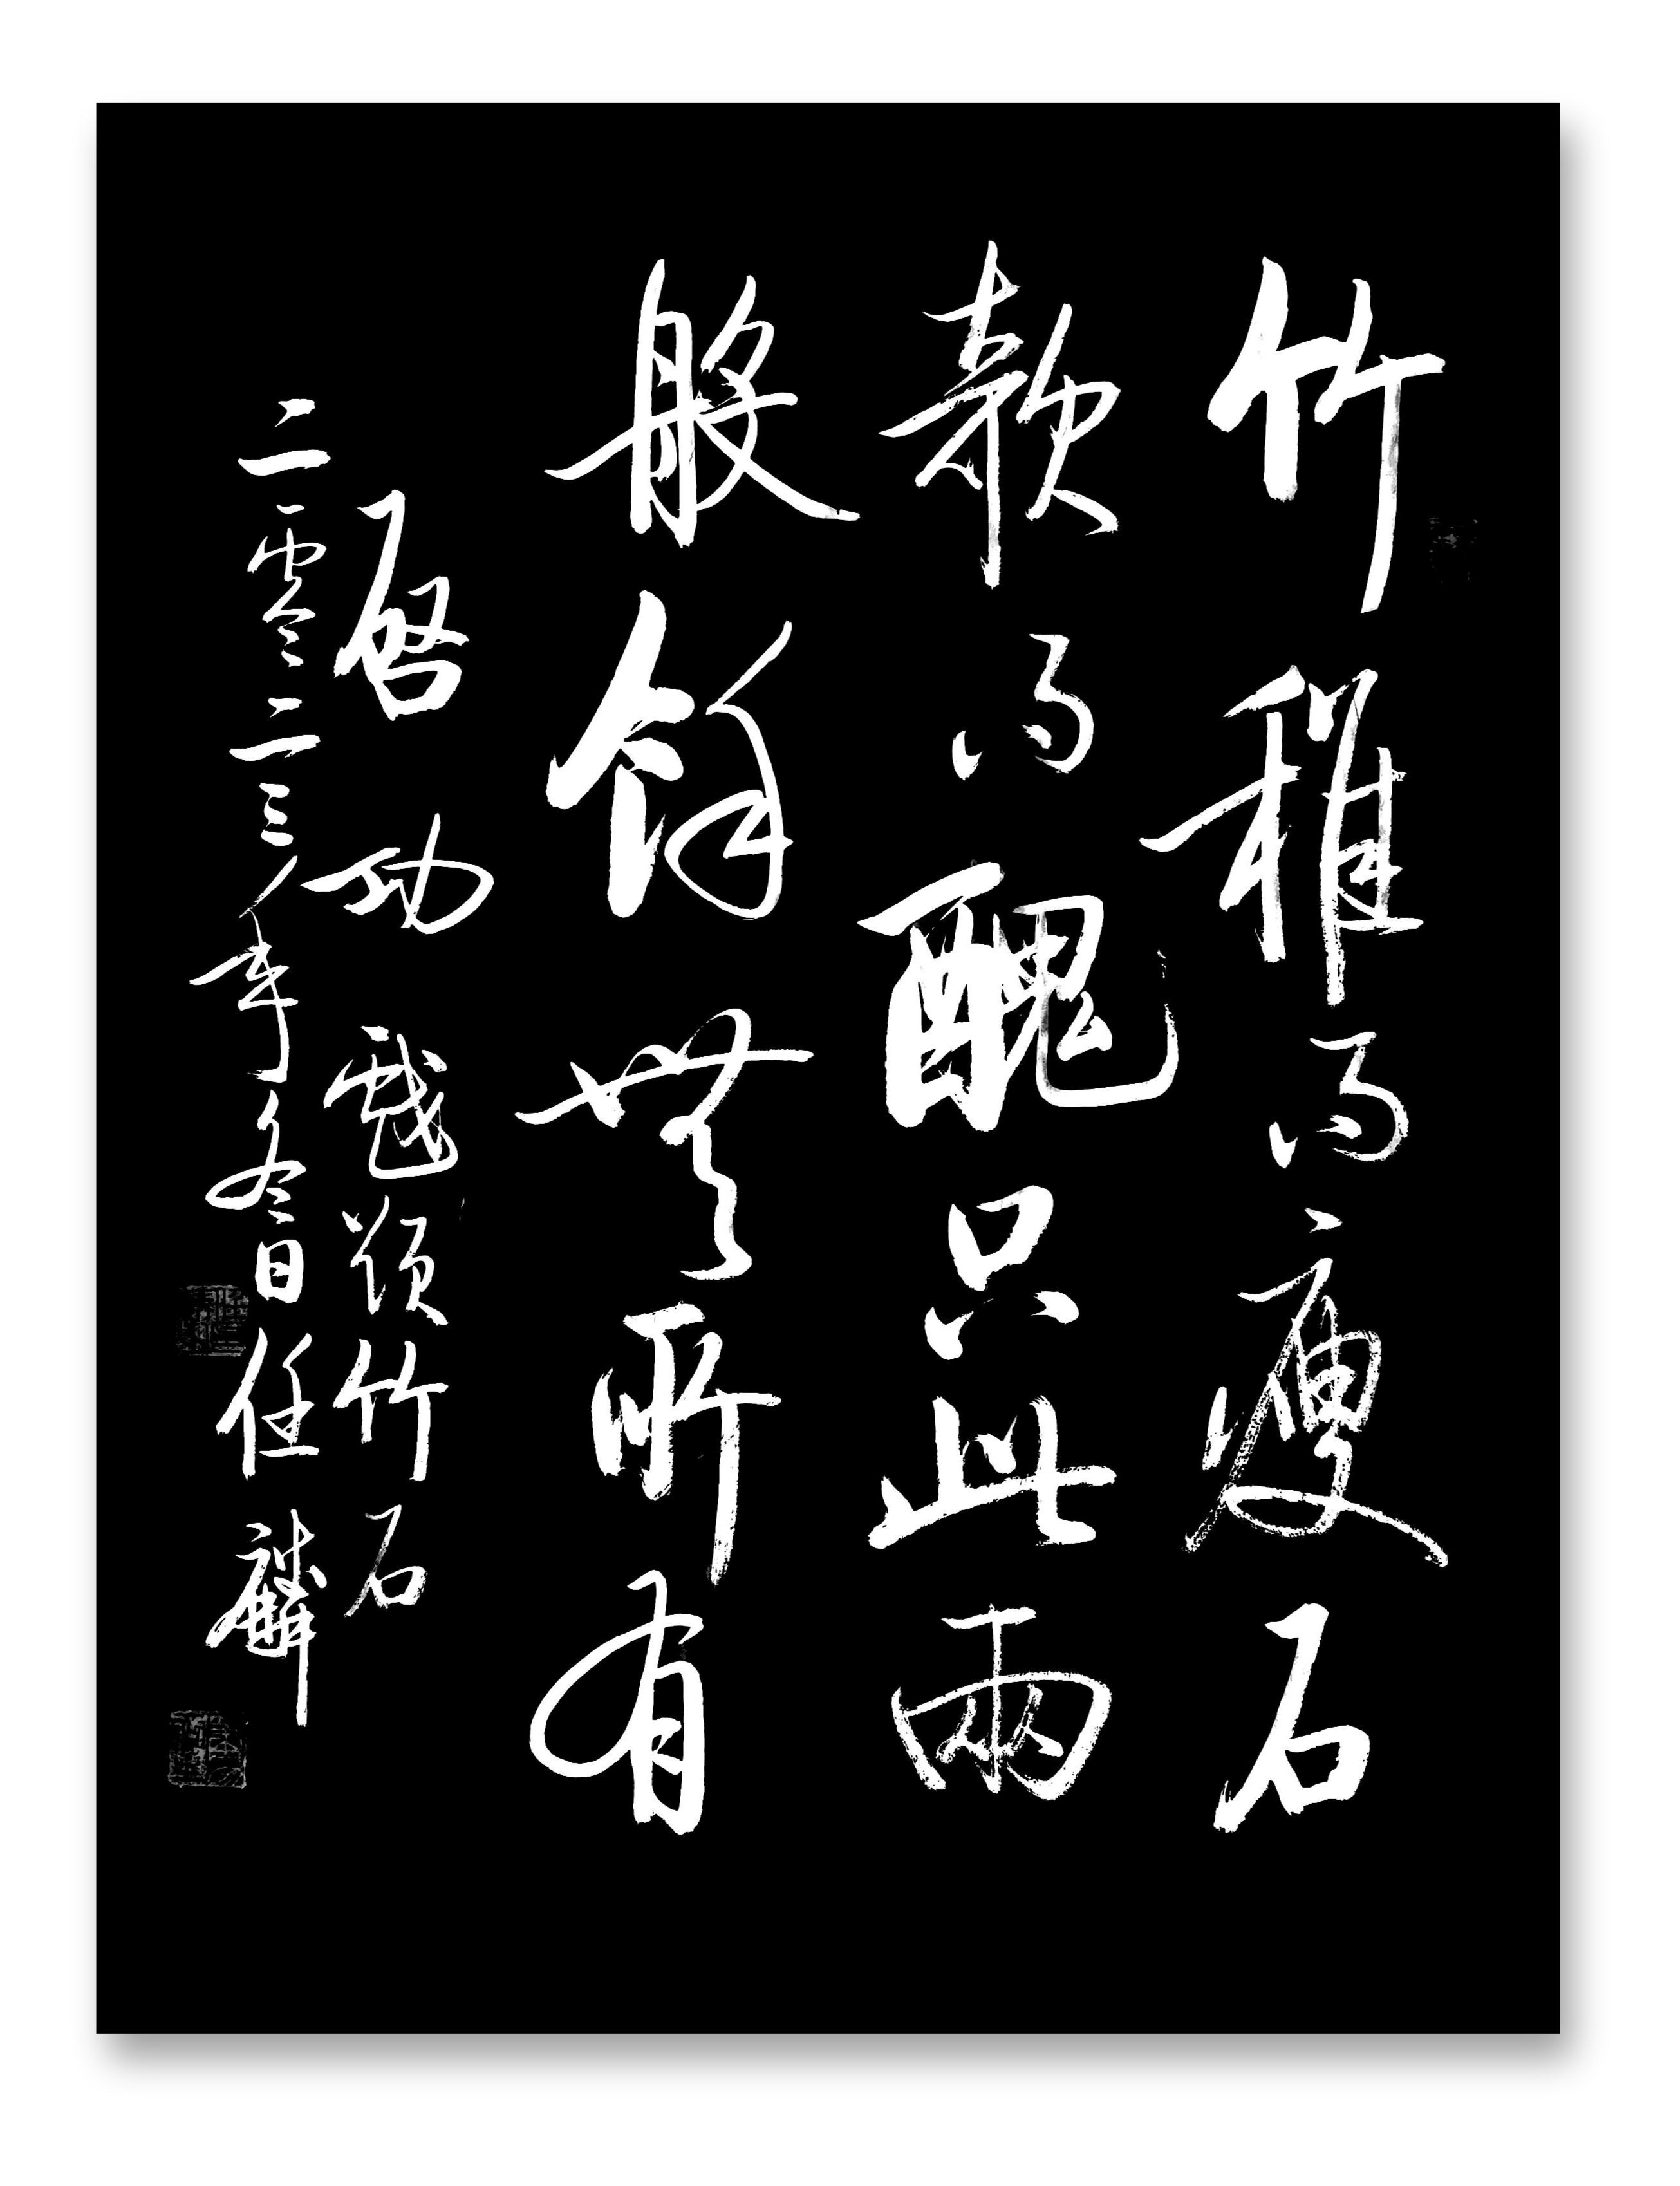 竹稚而瘦石
款而醜只此兩
般餘無所有
啓功 戲題竹石
二零二三年冬日任麟